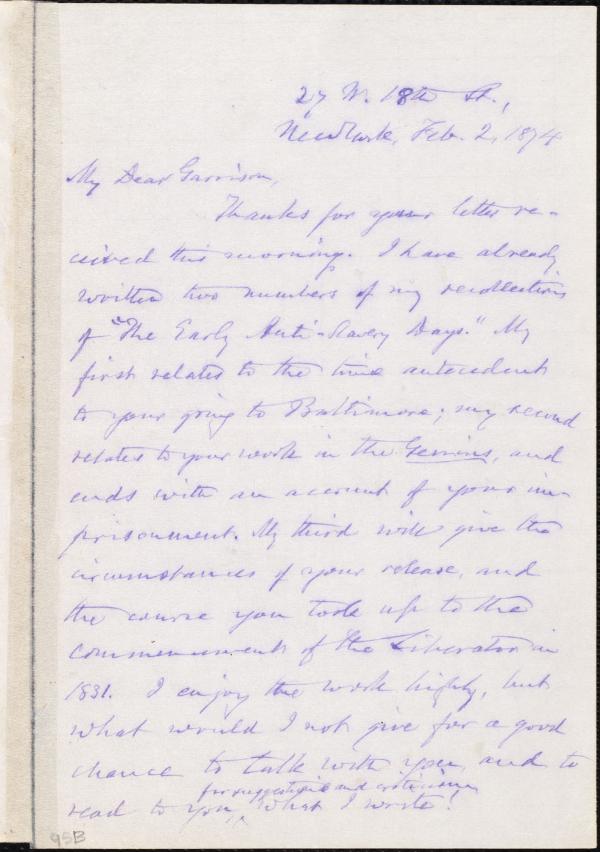 27 W. 18th St.,
New York, Feb. 2, 1874
My Dear Garrison,
Thanks for your letter re-
ceived this morning. I have already
written two numbers of my recollections
of "The Early Anti-Slavery Days." My
first relates to the time antecedent
to your going to Baltimore; my second
relates to your work in the Genius, and
ends with an account of your im-
prisonment. My third will give the
circumstances of your release, and
the course you took up to the
commencement of the Liberator in
1831. I enjoy the work highly, but
what would I not give for a good
chance to talk with you, and to
for suggestions and criticism,
read to you ^ what I write!
95B